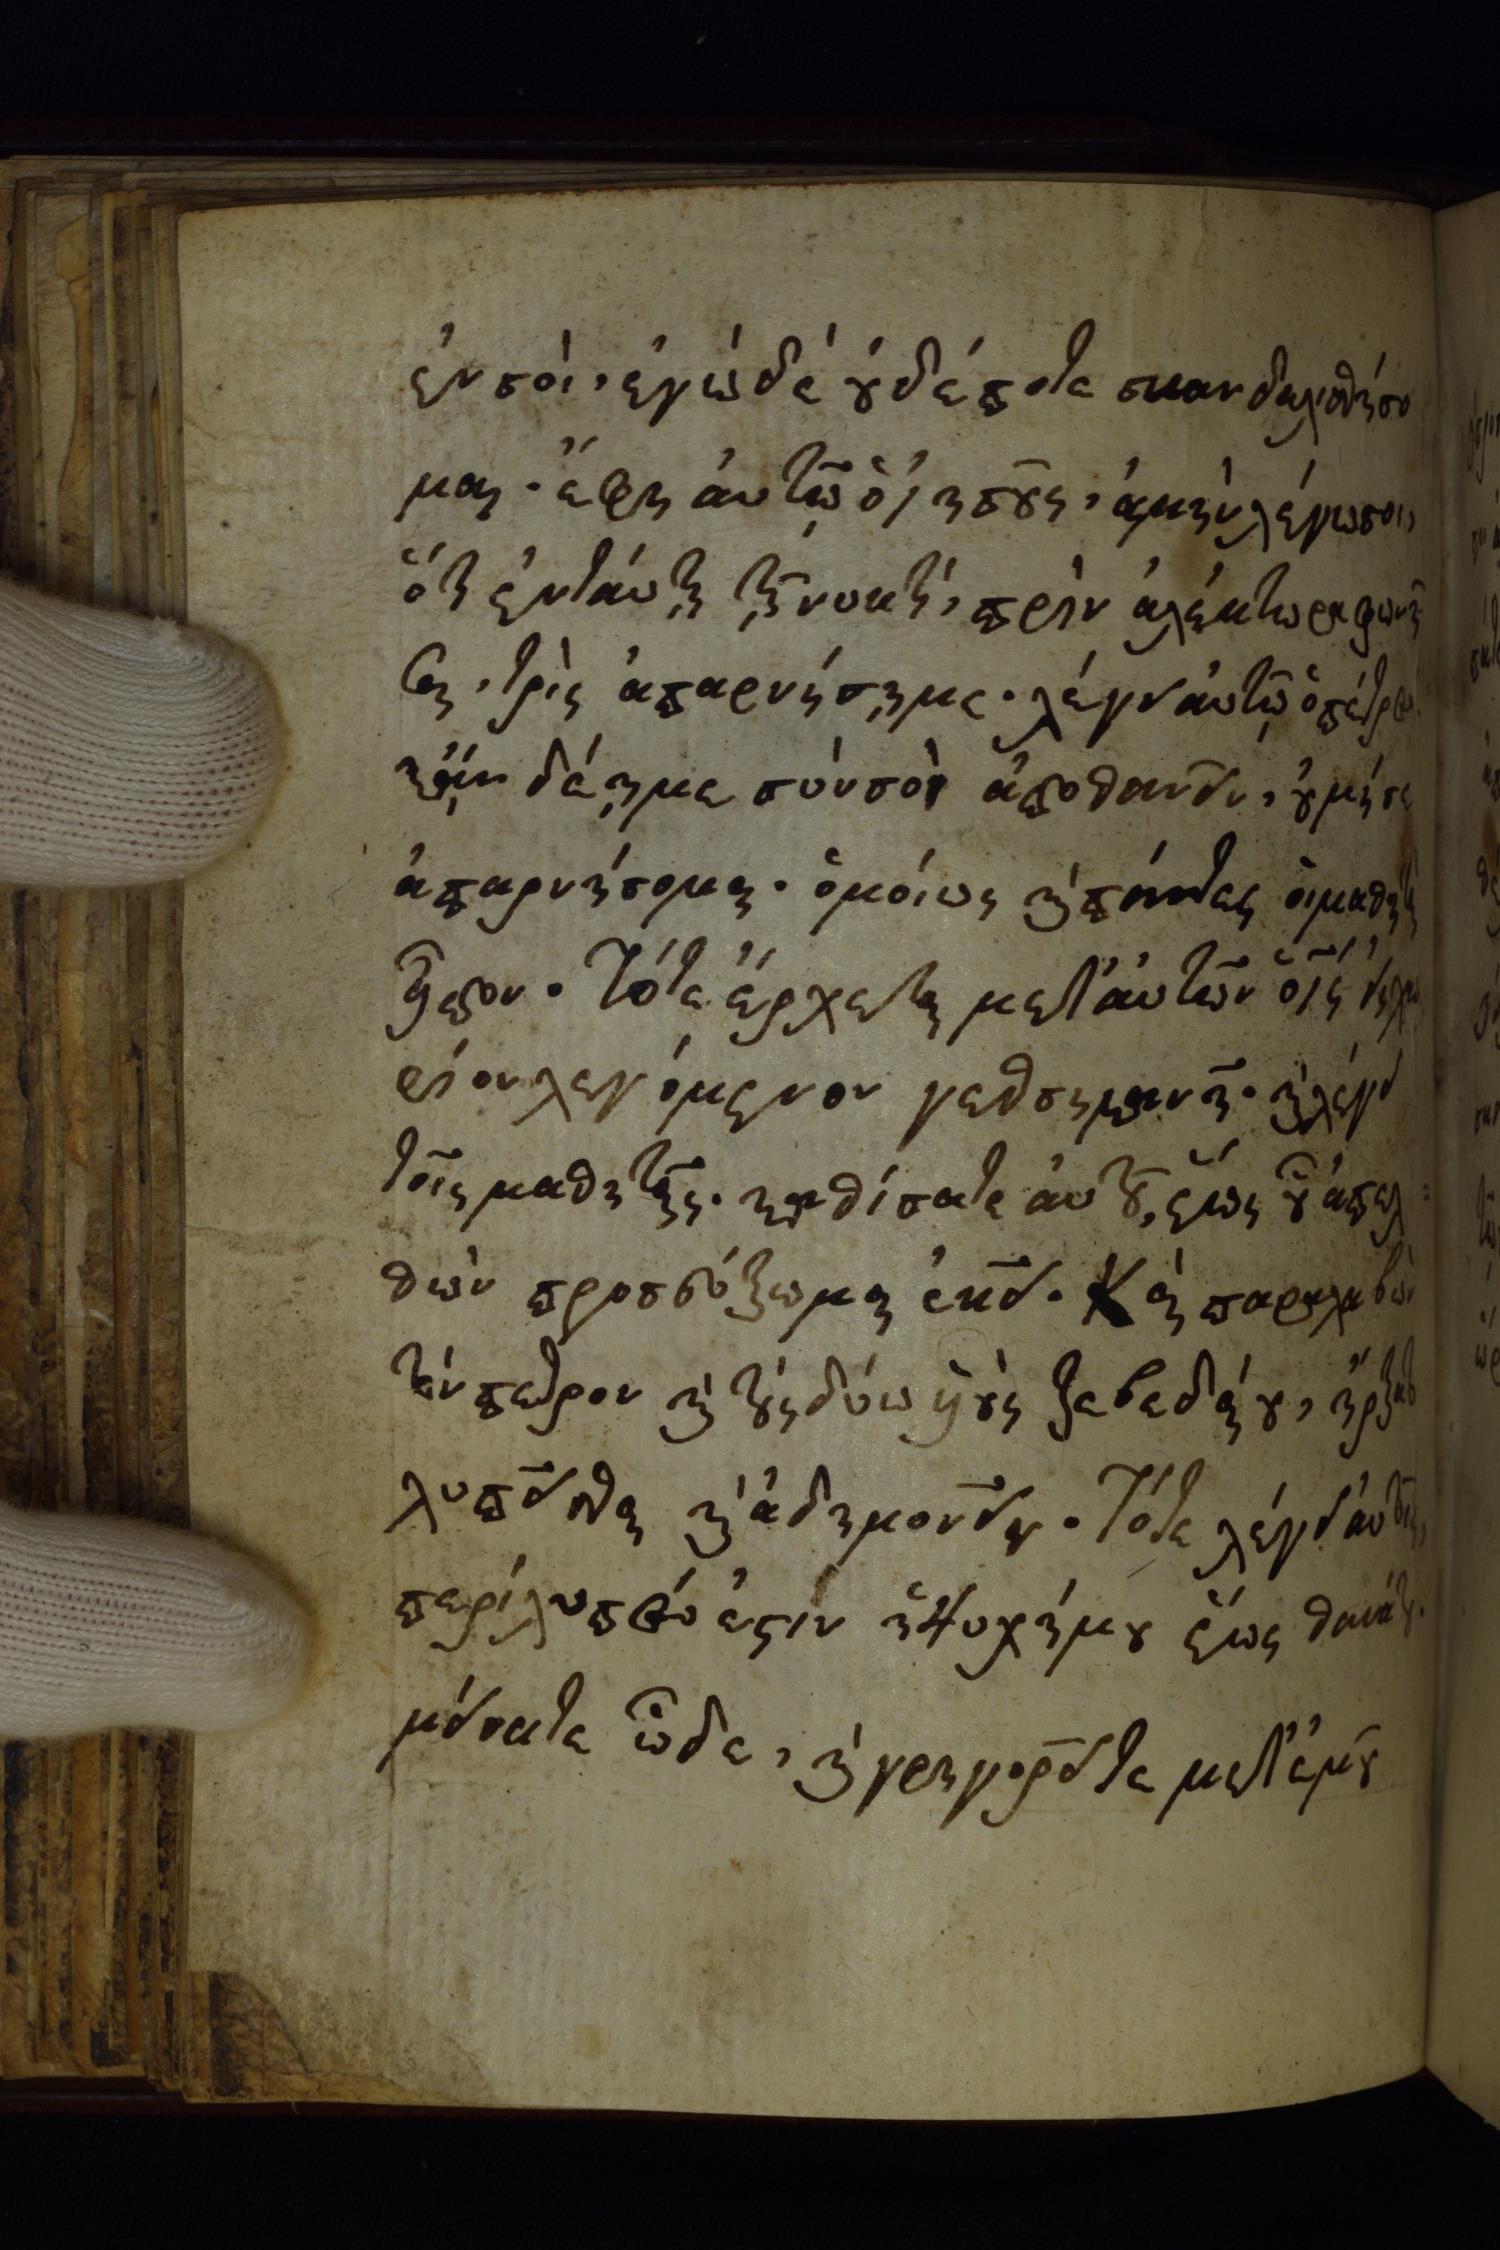 ἐν σοὶ, ἐγὼ δὲ οὐδέποτε σκανδαλισθήσο
μαι. ἔφη αὐτῷ ὁ ἰησοῦς, ἀμὴν λέγω σοι,
ὅτι ἐν ταύτῃ τῇ νυκτὶ, πρὶν ἀλέκτορα φωνῆ
σαι, τρὶς ἀπαρνήσῃ με. λέγει αὐτῷ ὁ πέτρος
κἂν δέῃ με σὺν σοὶ ἀποθανεῖν, οὐ μή σε
ἀπαρνήσομαι. ὁμοίως καὶ πάντες οἱ μαθηταὶ
εἶπον. Τότε ἔρχεται μετ' αὐτῶν ὁ ἰς εἰς χω
ρίον λεγόμενον γεθσημανῆ. καὶ λέγει
τοῖς μαθηταῖς. καθίσατε αὐτοῦ, ἕως οὗ ἀπελ
θὼν προσεύξωμαι ἐκεῖ. Καὶ παραλαβὼν
τὸν πέτρον καὶ τοὺς δύω υἱοὺς ζεβεδαίου, ἤρξατο
λυπεῖσθαι καὶ ἀδημονεῖν. Τότε λέγει αὐτοῖς,
περίλυπός ἐστιν ἡ ψυχή μου ἕως θανάτου.
μείνατε ὧδε, καὶ γρηγορεῖτε μετ' ἐμοῦ